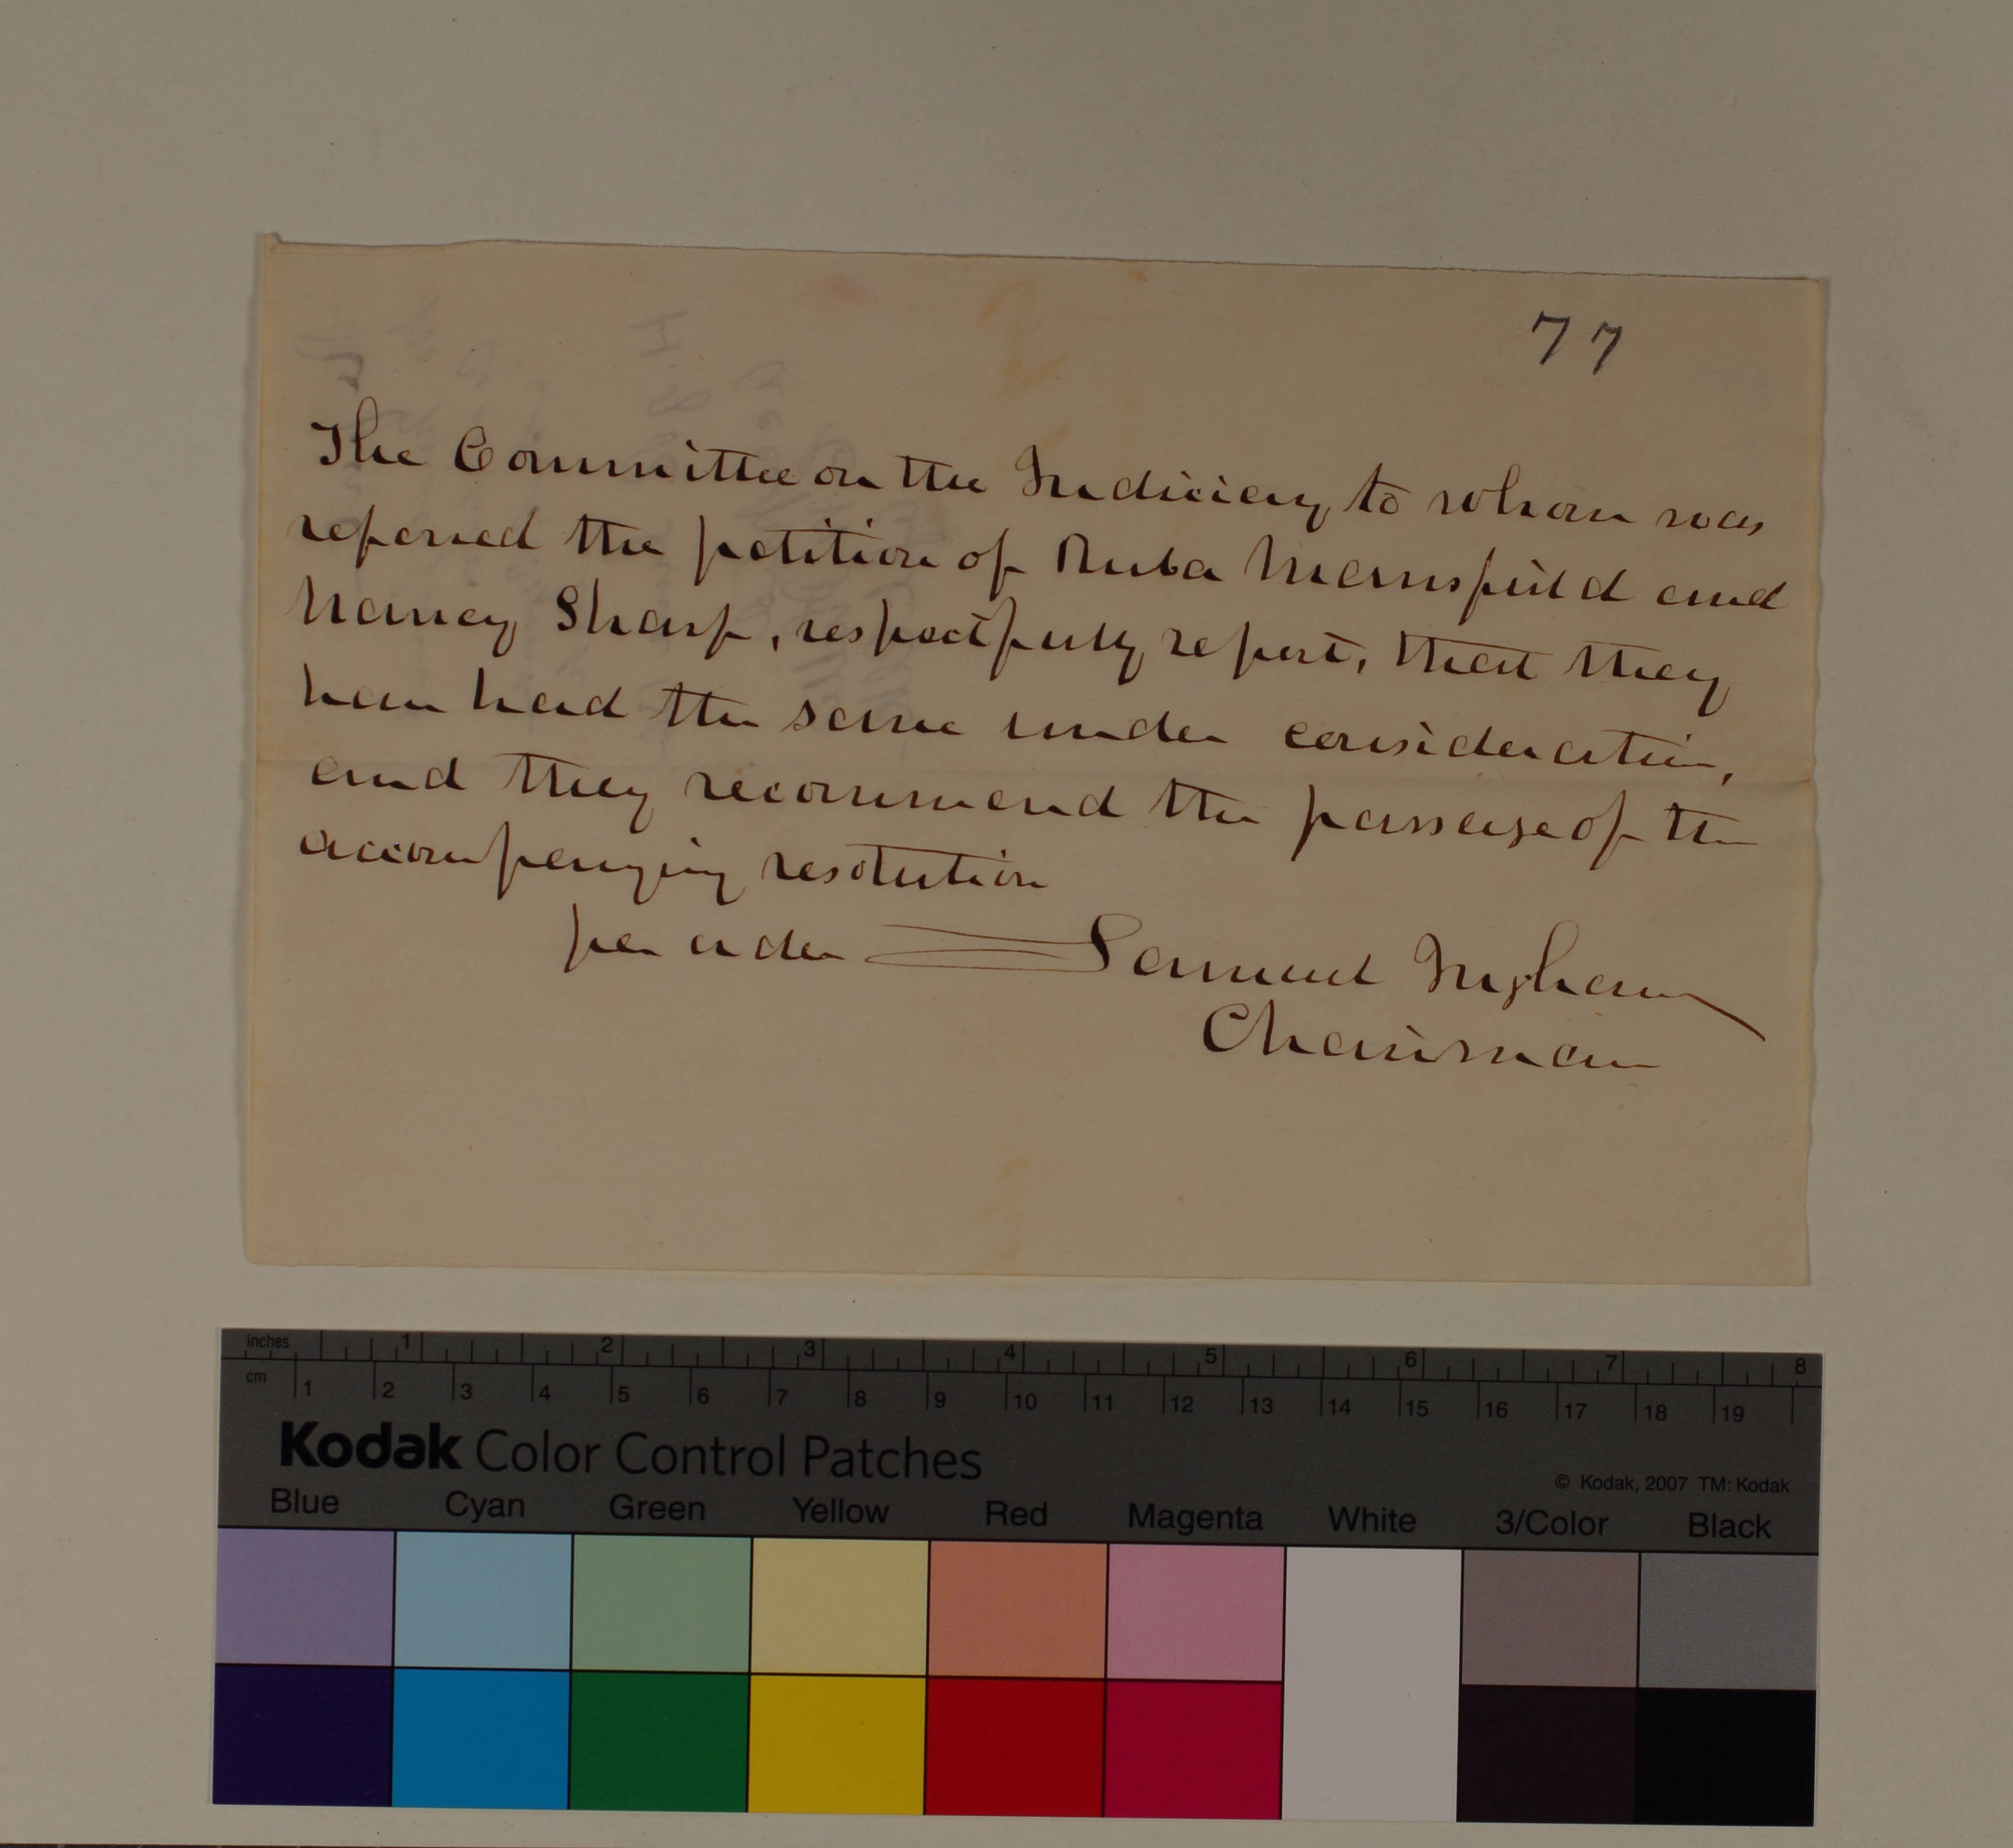 77
The Committee on the Judiciary, to whom was
referred the petition of Ruba Mansfield and
Nancy Sharp, respectfully report, that they
have had the same under consideration,
and they recommend the passage of the
accompanying resolution
per order Samuel Ingham
Chairman
inches 1 2 3 4 5 6 7 8
cm 1 2 3 4 5 6 7 8 9 10 11 12 13 14 15 16 17 18 19
Kodak Color Control Patches
© Kodak, 2007 TM: Kodak
Blue Cyan Green Yellow Red Magenta White 3/Color Black